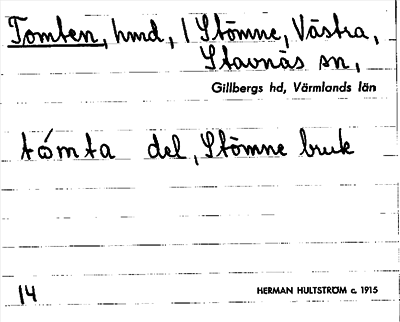 Tomten, hmd, 1 Stömne, Västra,
Stavnäs sn,
Gillbergs hd, Värmlands län
tómta del, Stömne bruk
14
HERMAN HULTSTRÖM c. 1915